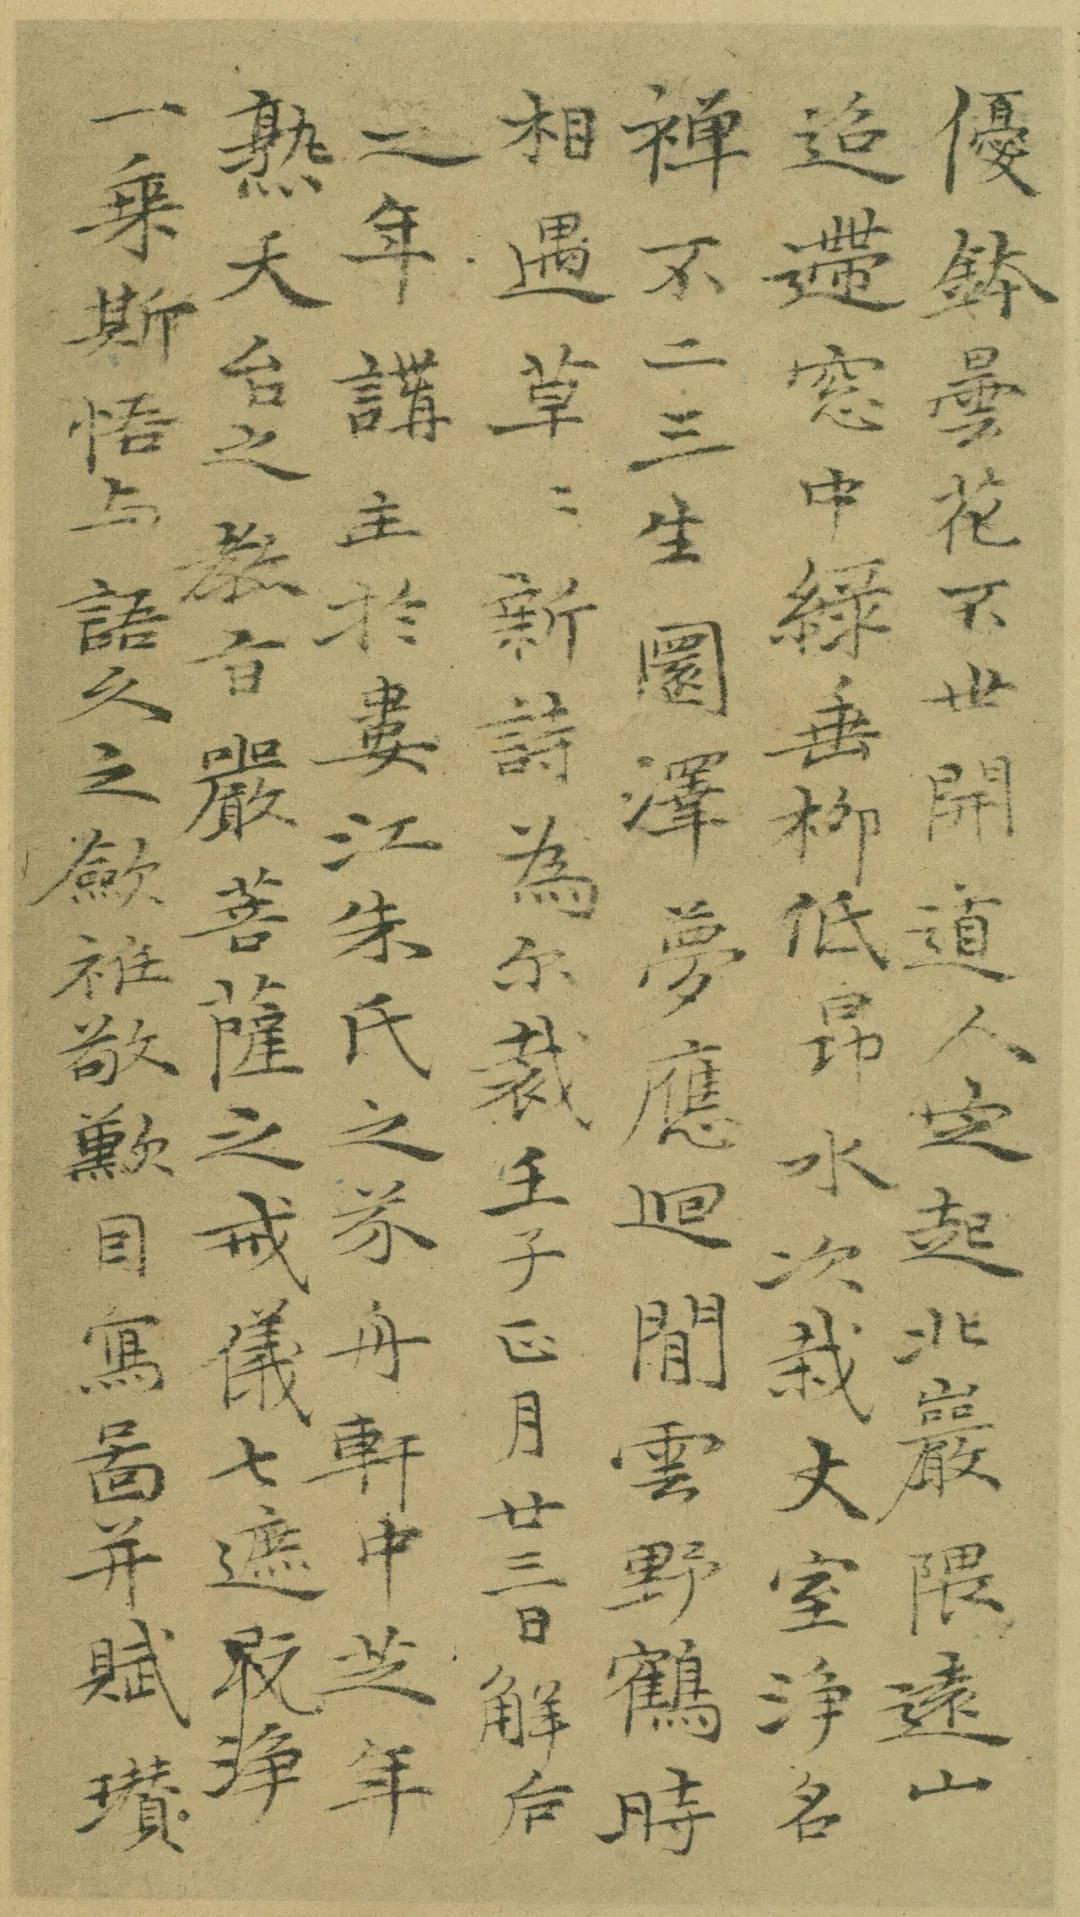 優鉢曇花不世開道人定起北巖隈遠山
迢遰窓中綠垂柳低昂水次栽丈室淨名
禪不二三生圓澤夢應迴閒雲野鶴時
相遇草〻新詩為尔裁壬子正月廿三日解后
之年講主於婁江朱氏之芥舟軒中芝年
熟天台之教音嚴菩薩之戒儀七遮既淨
一乗斯悟与語久之歛衽敬歎因寫啚并賦瓚